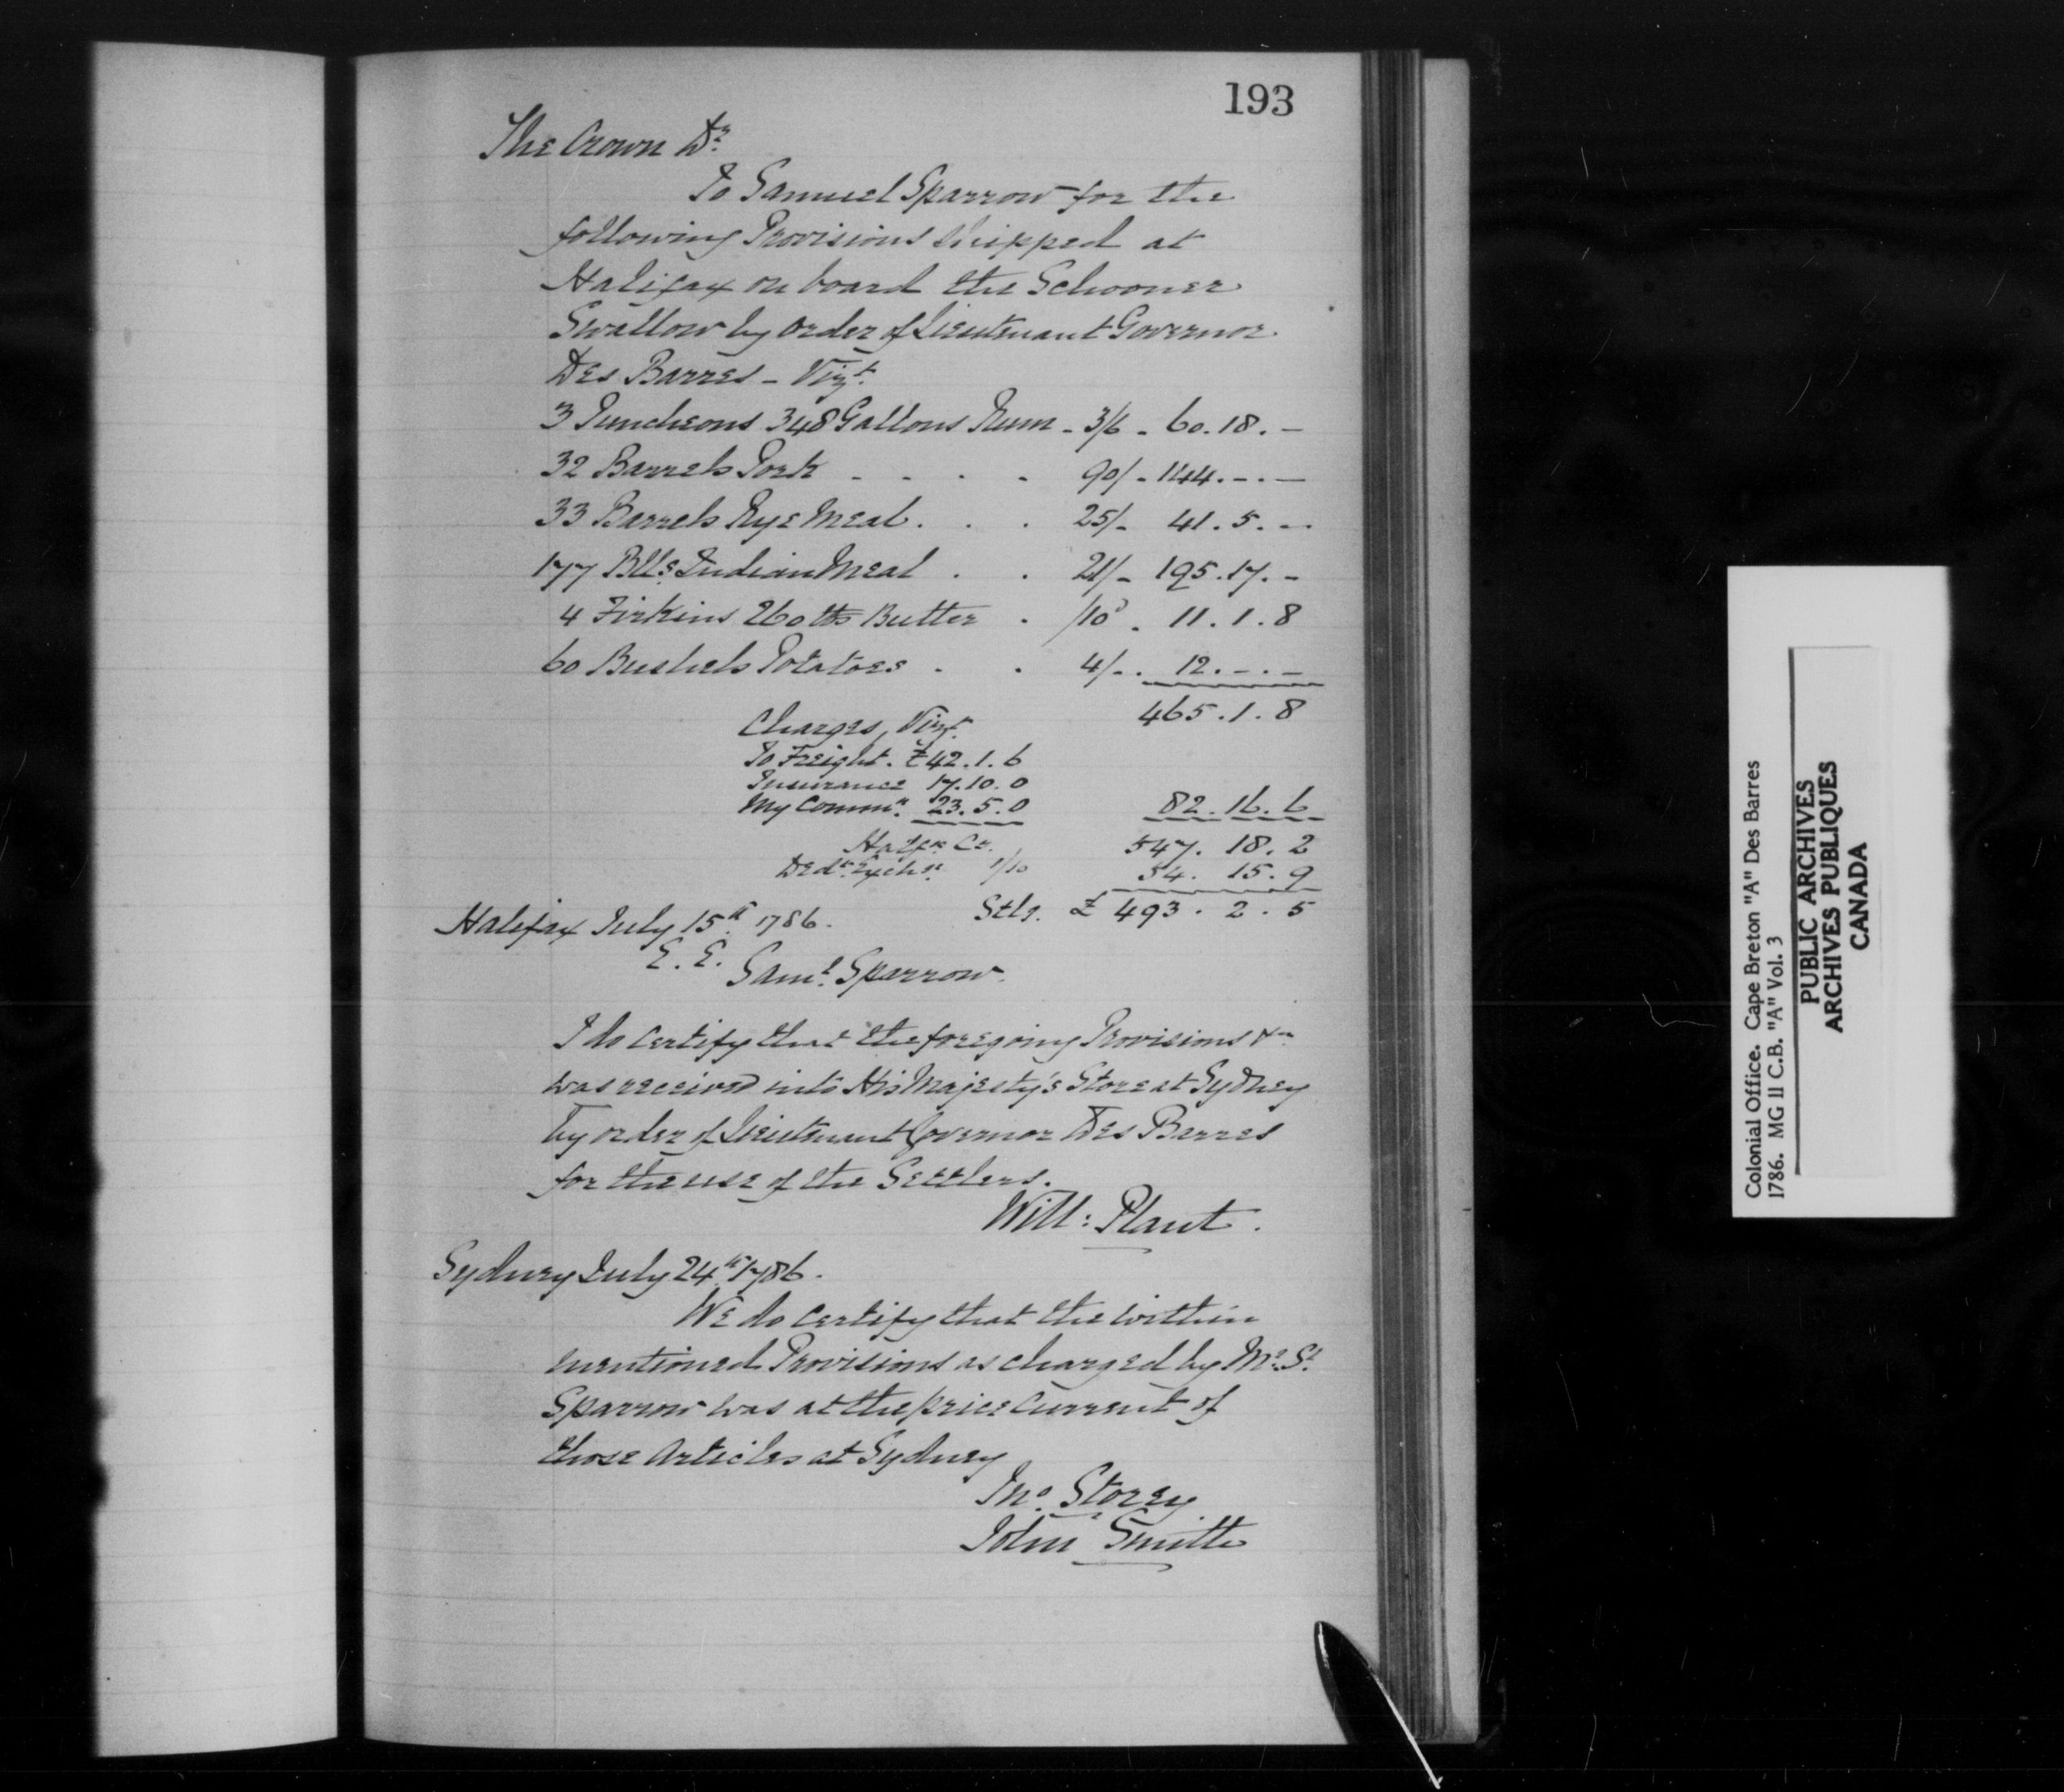 193
The Crown Dr.
To Samuel Sparrow for the
following Provisions Shipped at
Halifax on board the Schooner
Swallow by order of Lieutenant Governor
Des Barres - Vizt.
3 Puncheons 348 Gallons Rum - 3/6 - 60.18. -
32 Barrels Pork - - . . 90/- 144. - . -
33 Barrels Rye Meal . . . 25/- 41. 5. -
177 Blls. Indian Meal . . 21/- 195.17. -
4 Firkins 260 lbs Butter . /10d. 11. 1. 8
60 Bushels Potatoes . . 4/-. 12. - . -
465. 1. 8
Charges, Vizt.
To Freight. £42. 1. 6
Insurance 17. 10. 0
My Commn. 23. 5. 0 82. 16. 6
Halfx. Cy. 547. 18. 2
Dedt. Exche. 1/10 54. 15. 9
Stlg. £ 493. 2. 5
Halifax July 15th 1786.
E. E.
Saml. Sparrow.
I do certify that the foregoing Provisions &c
was received into His Majesty's Store at Sydney
by order of Lieutenant Governor Des Barres
for the use of the Settlers.
Will: Plant.
Sydney July 24th 1786.
We do certify that the within
mentioned Provisions as charged by Mr. Sl.
Sparrow was at the price current of
those Articles at Sydney
Jno. Storey
John Smith
Colonial Office. Cape Breton "A" Des Barres
1786. MG 11 C.B. "A" Vol. 3
PUBLIC ARCHIVES
ARCHIVES PUBLIQUES
CANADA